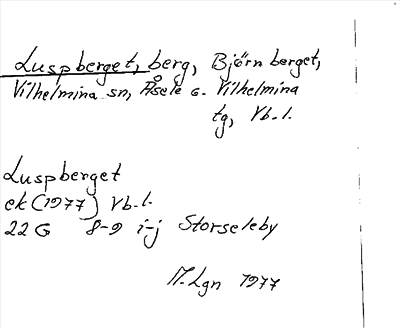 Luspberget, berg, Björnberget,
Vilhelmina sn, Åsele o. Vilhelmina
tg, Vb. l.
Luspberget
ek (1977) Vb. l.
22 G 8-9 i-j Storseleby
M. Lgn 1977